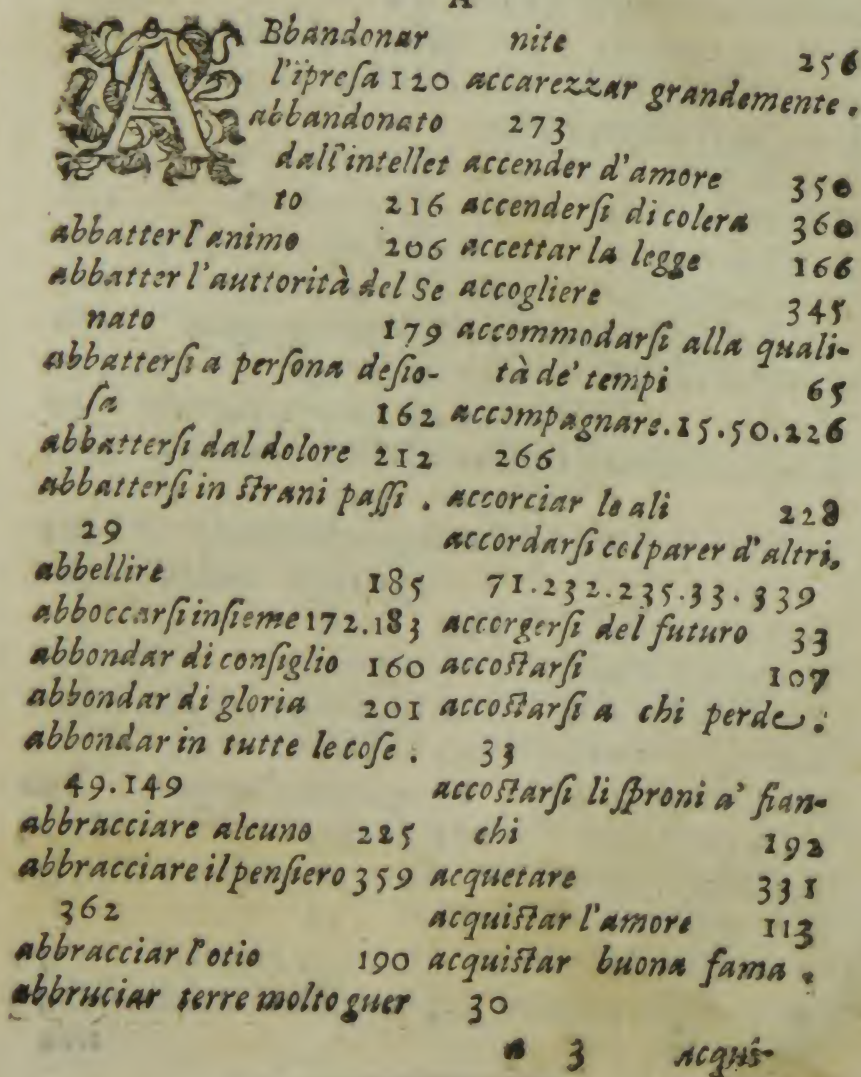 A
ABbandonar
l'ĩpreſa 120
abbandonato
dall'intellet
to 216
abbatter l'animo 206
abbatter l'auttorità del Se
nato 179
abbatterſi a perſona deſio-
ſa 162
abbatterſi dal dolore 212
abbatterſi in ſtrani paſſi .
29
abbellire 185
abboccarſi inſieme 172.183
abbondar di conſiglio 160
abbondar di gloria 201
abbondar in tutte le coſe .
49.149
abbracciare alcuno 225
abbracciare il penſiero 359
362
abbracciar l'otio 190
abbruciar terre molto guer
nite 256
accarezzar grandemente .
273
accender d'amore 350
accenderſi di colera 360
accettar la legge 166
accogliere 345
accommodarſi alla quali-
tà de' tempi 65
accompagnare.15.50.226
266
accorciar le ali 228
accordarſi col parer d'altri.
71.232.235.33.339
accorgerſi del futuro 33
accoſtarſi 107
accoſtarſi a chi perde .
33
accoſtarſi li ſproni a' fian-
chi 192
acquetare 331
acquiſtar l'amore 113
acquiſtar buona fama .
30
a 3 acqui-